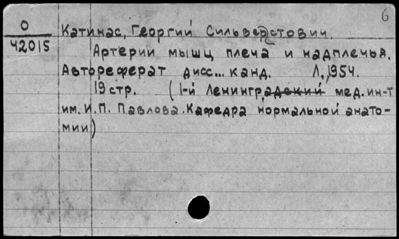 6
О
42015
Катинас, Георгий Сильверстович.
Артерии мышц плеча и надплечья.
Автореферат дисс... канд. Л., 1954.
19 стр. (1-й Ленинградский мед. ин-т
им. И.П. Павлова. Кафедра нормальной анато-
мии)